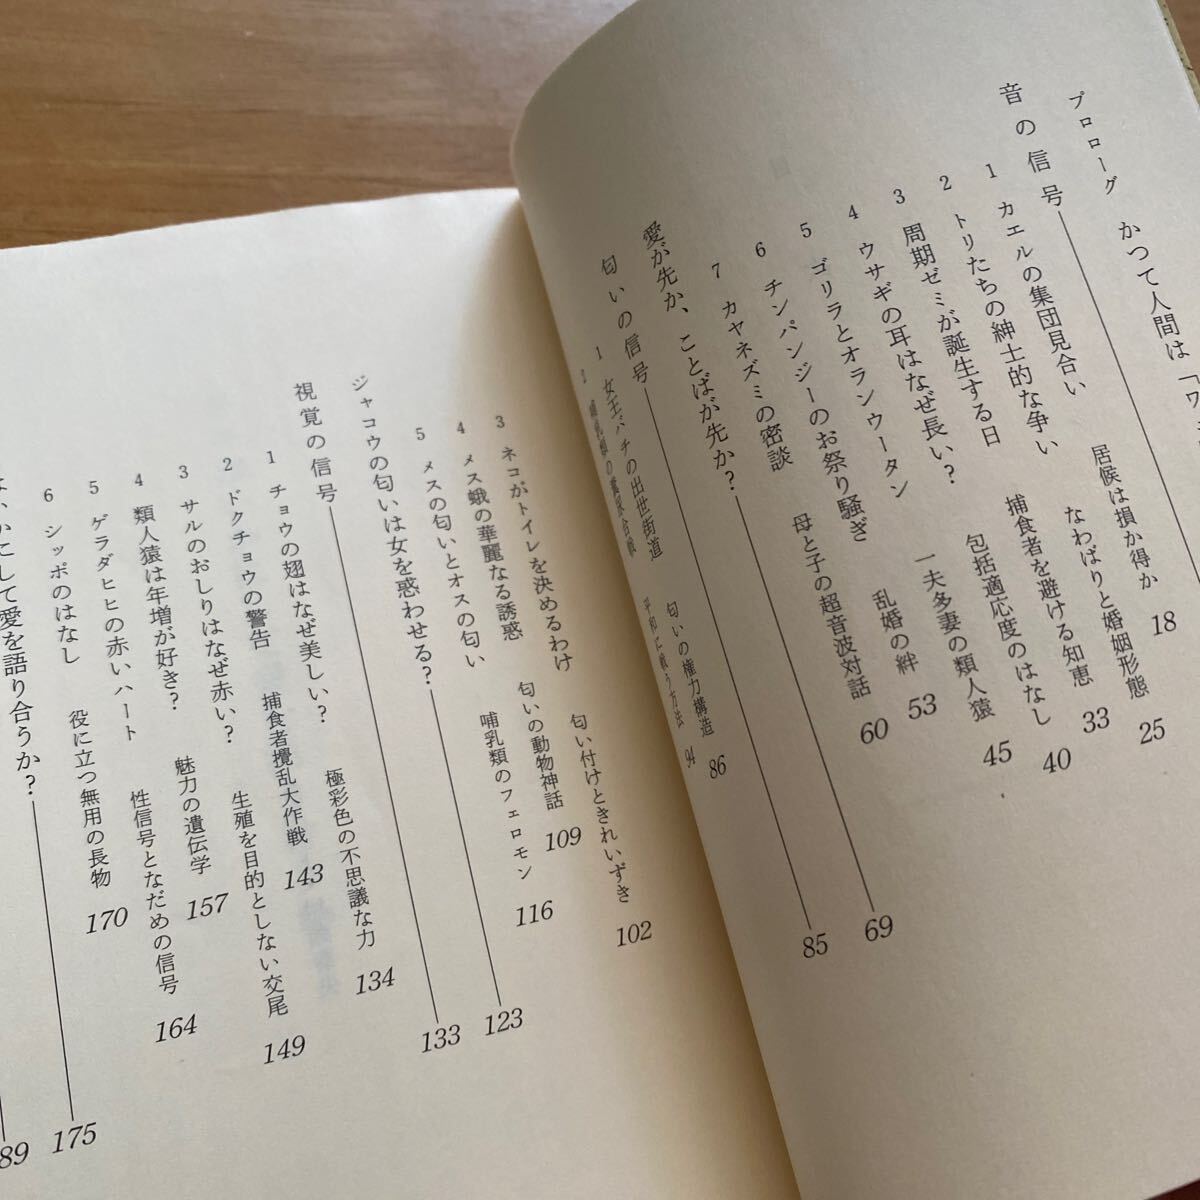 プロローグ かつて人間は「ワ
音の信号
1 カエルの集団見合い 居候は損か得か 18
2 トリたちの紳士的な争い なわばりと婚姻形態 25
3 周期ゼミが誕生する日 捕食者を避ける知恵 33
4 ウサギの耳はなぜ長い? 包括適応度のはなし 40
5 ゴリラとオランウータン 一夫多妻の類人猿 45
6 チンパンジーのお祭り騒ぎ 乱婚の絆 53
7 カヤネズミの密談 母と子の超音波対話 60
愛が先か、ことばが先か? 69
匂いの信号 85
1 女王バチの出世街道 匂いの権力構造 86
2 平和に戦う方法 94
3 ネコがトイレを決めるわけ 匂い付けときれいずき 102
4 メス蛾の華麗なる誘惑 匂いの動物神話 109
5 メスの匂いとオスの匂い 哺乳類のフェロモン 116
ジャコウの匂いは女を惑わせる? 123
視覚の信号 133
1 チョウの翅はなぜ美しい? 極彩色の不思議な力 134
2 ドクチョウの警告 捕食者攪乱大作戦 143
3 サルのおしりはなぜ赤い? 生殖を目的としない交尾 149
4 類人猿は年増が好き? 魅力の遺伝学 157
5 ゲラダヒヒの赤いハート 性信号となだめの信号 164
6 シッポのはなし 役に立つ無用の長物 170
にして愛を語り合うか? 175
89